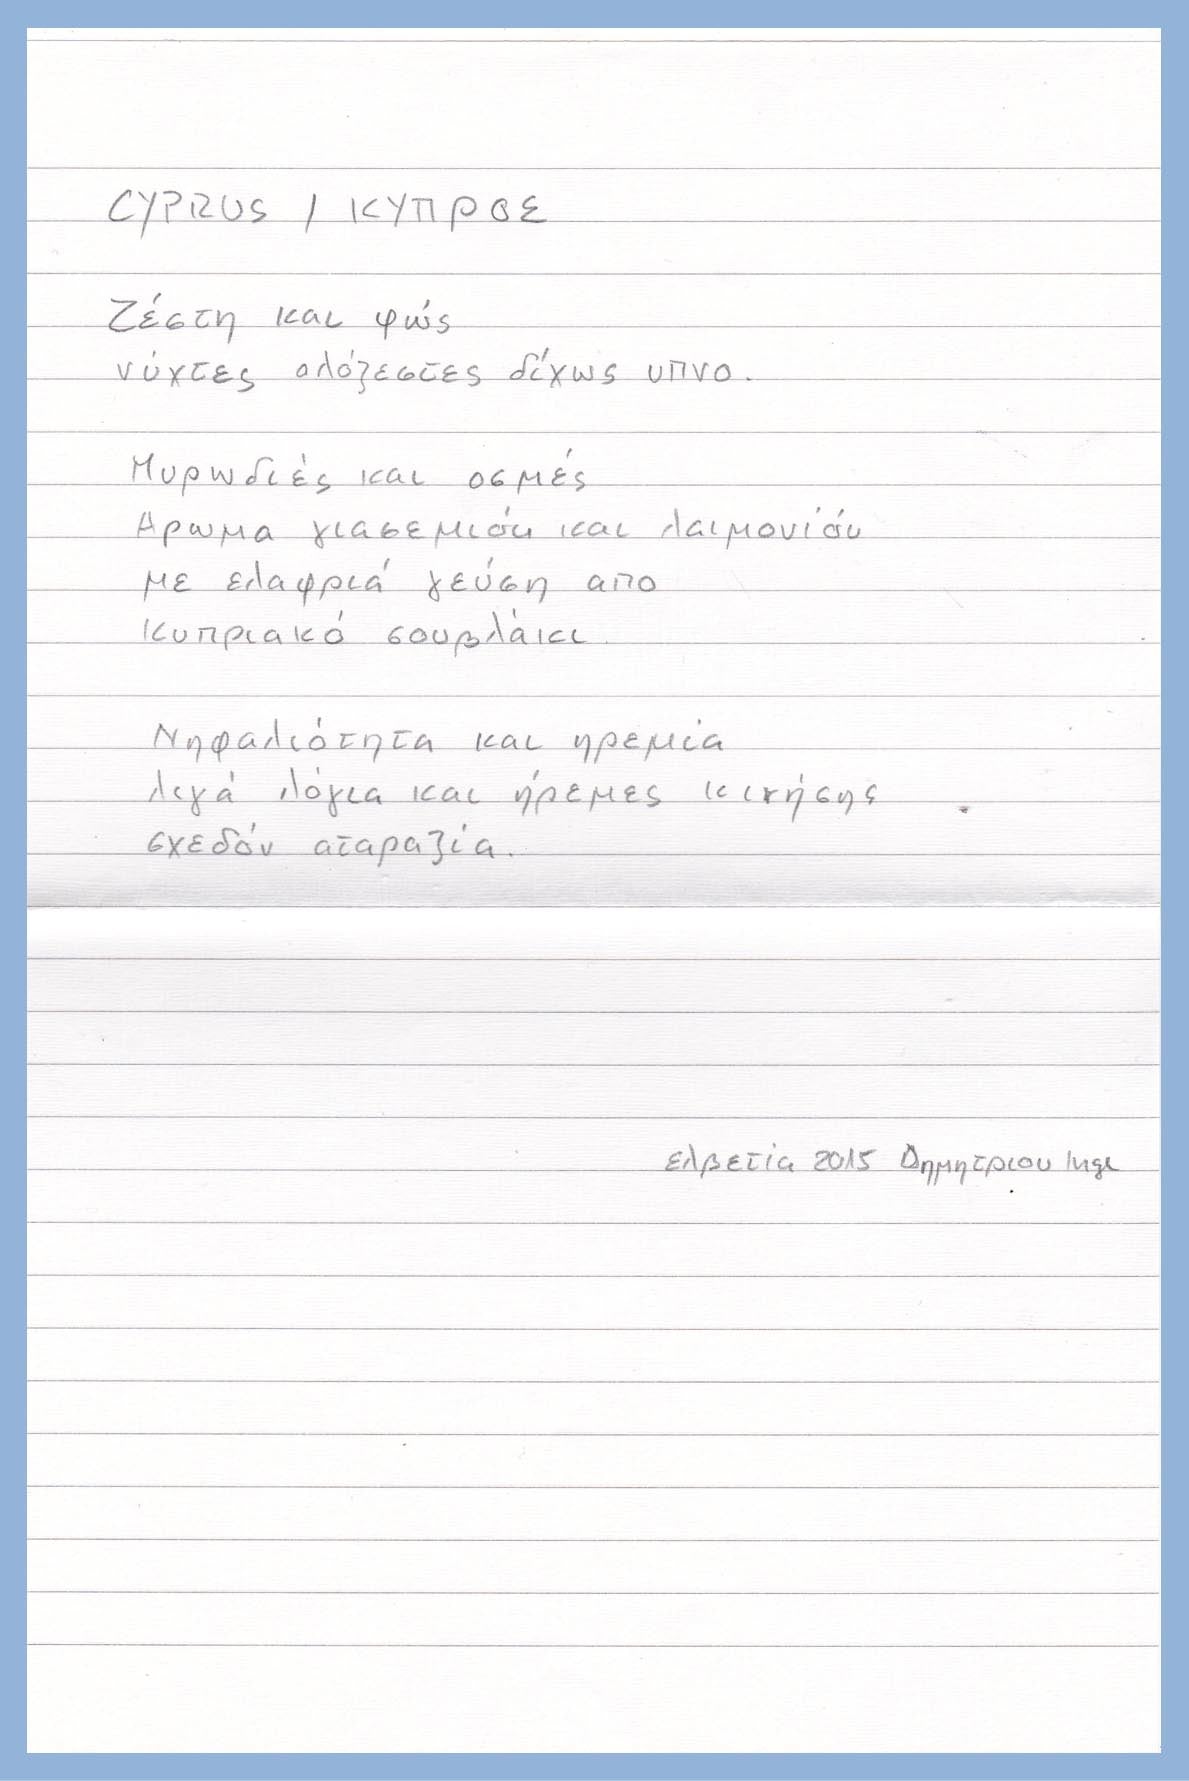 CYPRUS / ΚΥΠΡΟΣ
Ζέστη και φώς
νύχτες ολόζεστες δίχως υπνο.
Μυρωδιές και οσμές
Αρωμα γιασεμιού και λαιμονιόυ
με ελαφριά γεύση απο
κυπριακό σουβλάκι.
Νηφαλιότητα και ηρεμία
λιγά λόγια και ήρεμες κινήσης
σχεδόν αταραξία.
ελβετία 2015 Δημητριου Inge